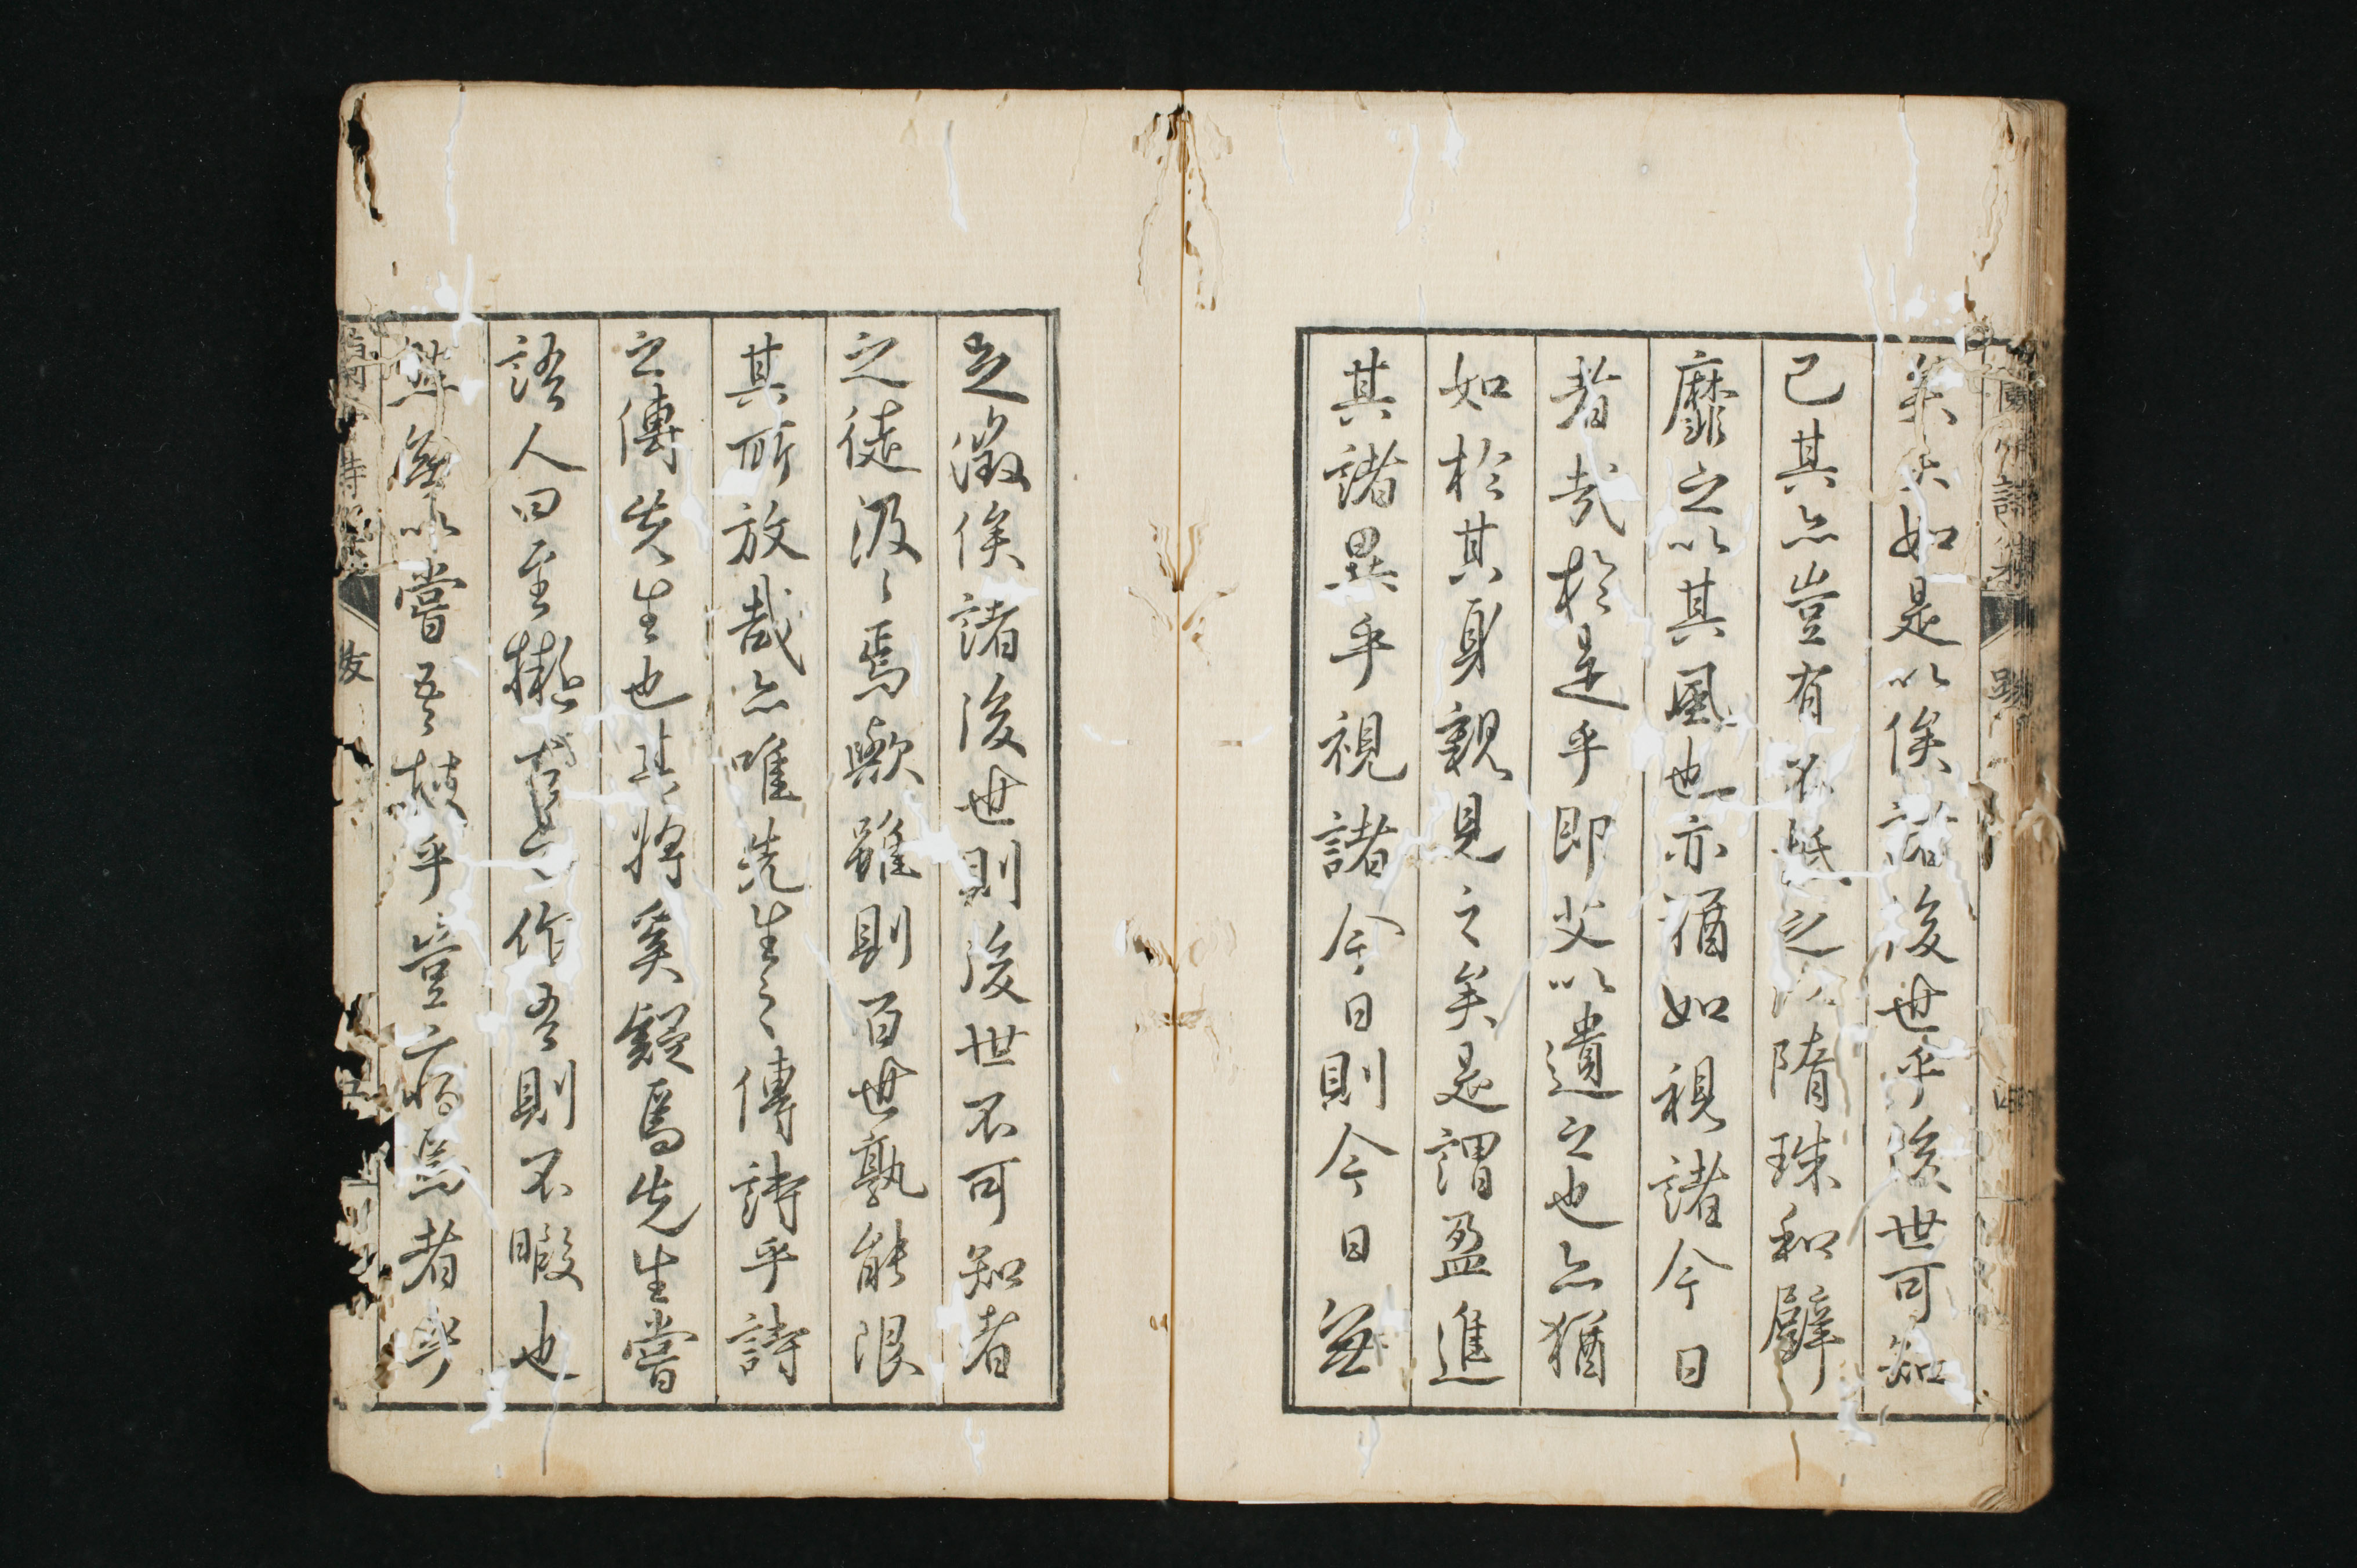 矣夫如是以俟諸後世乎後世可知
已其亦豈有不抵之以隋珠和璧
靡之以其風也亦猶如視諸今日
者哉於是乎即必以遺之也亦猶
如於其身親見之矣是謂盈進
其諸異乎視諸今日則今日無
之徵俟諸後世則後世不可知者
之徒汲々焉歟雖則百世孰能限
其所放哉亦唯先生之傳詩乎詩
之傳先生也其將奚疑焉先生嘗
語人曰至擬古之作吾則不暇也
鮮無以嘗吾技乎豈病焉者乎